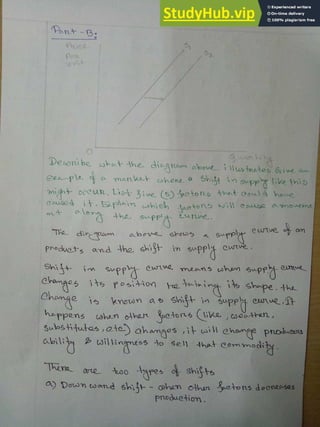 StudyHub.vip
Experienced writers
On-time delivery
100% plagiarism free
Part-B:
Price
Per
unit
S1
S2
0
Quantity
Describe what the diagram above illustrates. Give an
example of a market where a shift in supply like this
might occur. List five (5) factors that could have
caused it. Explain which factors will cause a movement
along the supply curve.
The diagram above shows a supply curve of an
products and the shift in supply curve.
Shift in supply curve means when supply curve
changes its position retaining its shape. The
change is known as shift in supply curve. It
happens when other factors (like, weather,
substitutes, etc) changes, it will change producers
ability & willingness to sell that commodity.
There are two types of shifts
a) Downward shift - when other factors decreases
production.